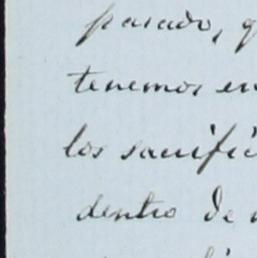 pasado, q
tenemos en
los sacrific
dentro de